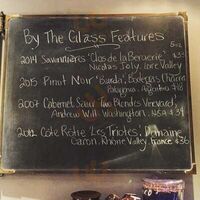 By The Glass Features
5oz
2014 Savennières "Clos de la Bergerie"
Nicolas Joly, Loire Valley
2015 Pinot Noir "Barda", Bodegas Chacra
Patagonia, Argentina $18
2007 Cabernet Sauv Two Blondes Vineyard,
Andrew Will, Washington, USA $39
2012 Côte Rôtie Les Triotes, Domaine
Garon, Rhône Valley, France $36